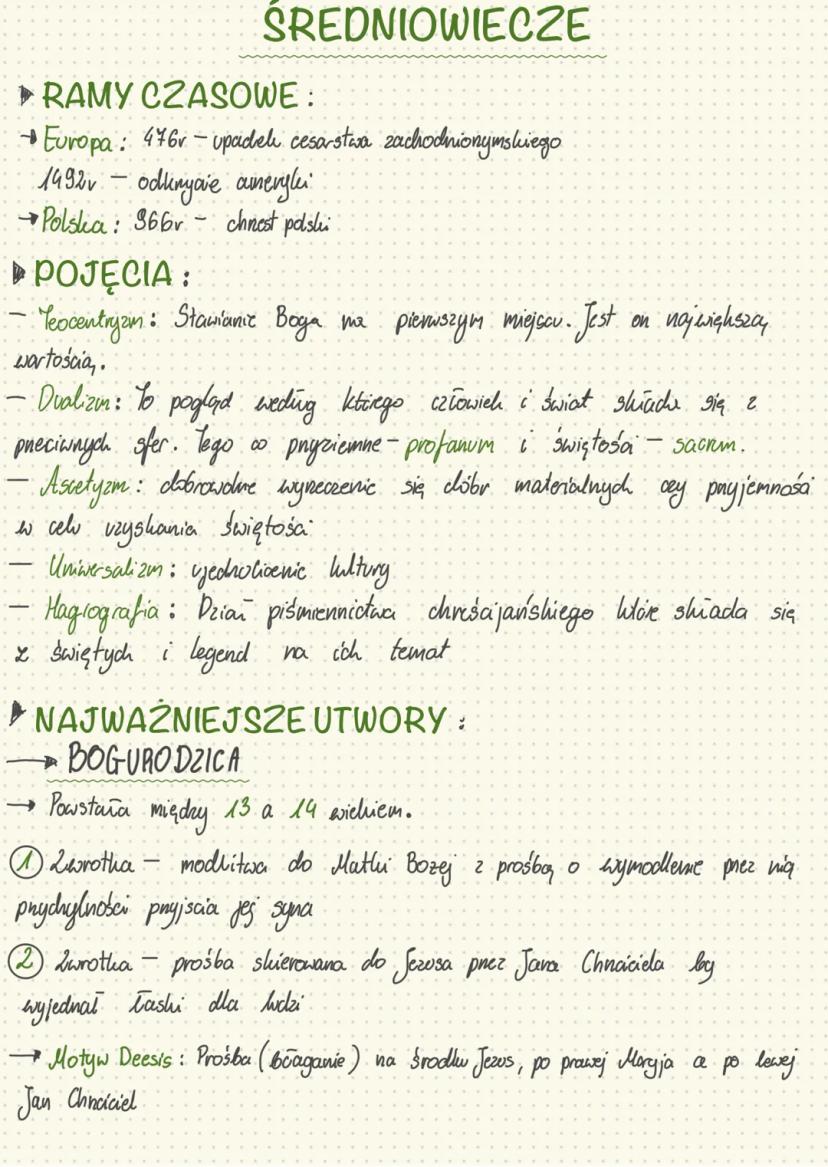 ŚREDNIOWIECZE
RAMY CZASOWE :
→ Europa : 476r – upadek cesarstwa zachodniorzymskiego
1492r – odkrycie ameryki
→ Polska : 966r – chrzest polski
POJĘCIA :
– Teocentryzm : Stawianie Boga na pierwszym miejscu. Jest on największą
wartością.
– Dualizm : To pogląd według którego człowiek i świat składa się z
przeciwnych sfer. Tego co przyziemne – profanum i świętości – sacrum.
– Ascetyzm : dobrowolne wyrzeczenie się dóbr materialnych czy przyjemności
w celu uzyskania świętości
– Uniwersalizm : ujednolicenie kultury
– Hagiografia : Dział piśmiennictwa chrześcijańskiego które składa się
z świętych i legend na ich temat
NAJWAŻNIEJSZE UTWORY :
→ BOGURODZICA
→ Powstała między 13 a 14 wiekiem.
1 Zwrotka – modlitwa do Matki Bożej z prośbą o wymodlenie przez nią
przychylności przyjscia jej syna
2 Zwrotka – prośba skierowana do Jezusa przez Jana Chrzciciela by
wyjednał łaski dla ludzi
→ Motyw Deesis : Prośba (błaganie) na środku Jezus, po prawej Maryja a po lewej
Jan Chrzciciel